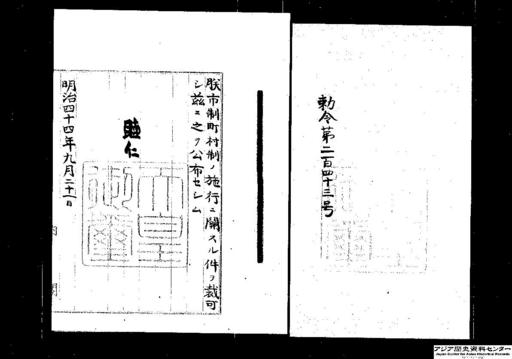 勅令第二百四十三号
朕市制町村制ノ施行ニ關スル件ヲ裁可
シ茲ニ之ヲ公布セシム
睦仁
明治四十四年九月二十一日
内閣
アジア歴史資料センター
Japan Center for Asian Historical Records